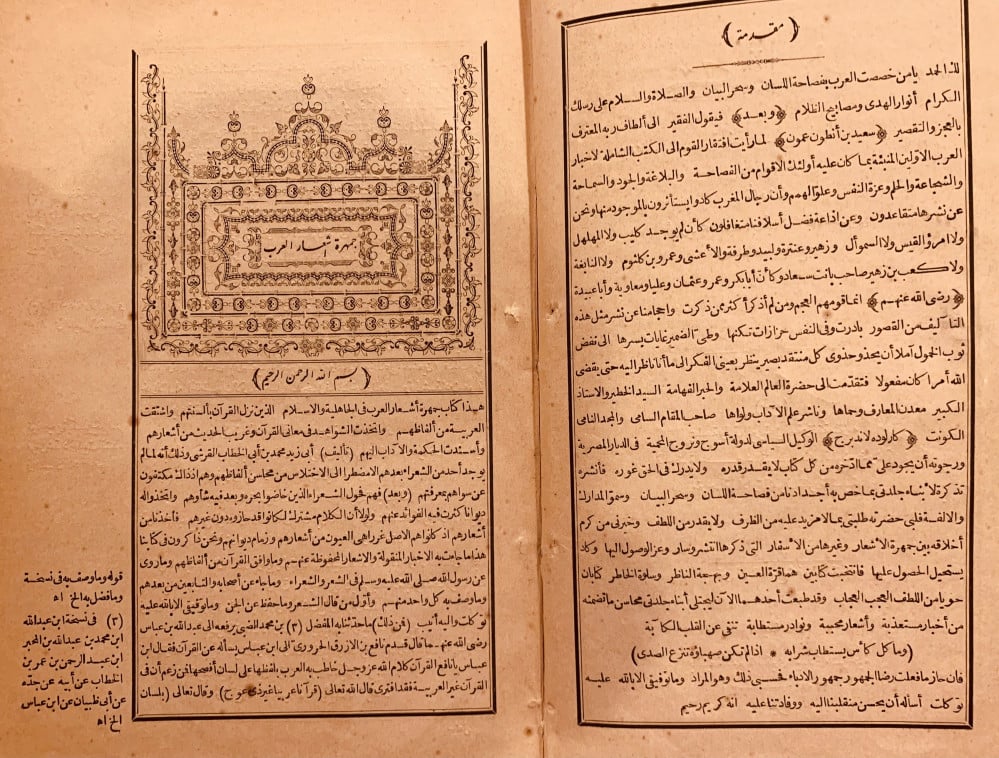 ﴿ مقدمة ﴾
لك الحمد يا من خصصت العرب بفصاحة اللسان وسحر البيان والصلاة والسلام على رسلك
الكرام أنوار الهدى ومصابيح الظلام ﴿وبعد﴾ فيقول الفقير الى ألطاف ربه المعترف
بالعجز والتقصير ﴿سعيد بن أنطون عمون﴾ لما رأيت افتقار القوم الى الكتب الشاملة لاخبار
العرب الاولين المنبئة بما كان عليه أولئك الاقوام من الفصاحة والبلاغة والجود والسماحة
والشجاعة والحلم وعزة النفس وعلو الهمم وأن رجال المغرب كادوا يستأثرون بالموجود منها ونحن
عن نشرها متقاعدون وعن اذاعة فضل أسلافنا متغافلون كأن لم يوجد كليب ولا المهلهل
ولا امرؤ القيس ولا السموأل وزهير وعنترة ولبيد وطرفة والأعشى وعمرو بن كلثوم ولا النابغة
ولا كعب بن زهير صاحب بانت سعاد وكأن أبا بكر وعمر وعثمان وعليا ومعاوية وأبا عبيدة
﴿رضى الله عنهم﴾ انما قومهم العجم ومن لم أذكر أكثر ممن ذكرت واحجامنا عن نشر مثل هذه
التآليف من القصور بادرت وفى النفس حزازات تسكنها وطى الضمير غايات يسرها الى نفض
ثوب الخمول آملا أن يحذو حذوى كل منتقد بصير ينظر بعينى الفكر الى ما أنا ناظر اليه حتى يقضى
الله أمرا كان مفعولا فتقدمت الى حضرة العالم العلامة والحبر الفهامة السيد الخطير والاستاذ
الكبير معدن المعارف وحماها وناشر علم الآداب ولواها صاحب المقام السامى والمجد النامى
الكونت ﴿كارلو ده لاندبرج﴾ الوكيل السياسى لدولة أسوج ونروج الفخيمة فى الديار المصرية
ورجوته أن يجود على بما ادخره من كل كتاب لا يقدر قدره ولا يدرك فى الحق غوره فأنشره
تذكرة لأبناء جلدتى بما خص به أجدادنا من فصاحة اللسان وسحر البيان وسمو المدارك
والالفة فلبى حضرته طلبتى بما لا مزيد عليه من الظرف ولا يقدر من اللطف وخيرنى من كرم
أخلاقه بين جمهرة الأشعار وغيرها من الأسفار التى ذكرها انتشر وسار وعز الوصول اليها وكاد
يستحيل الحصول عليها فانتخبت كتابين هما قرة العين وبهجة الناظر وسلوة الخاطر كتابان
حويا من اللطف العجب العجاب وقد طبعت أحدهما الآن ليجتلى أبناء جلدتى محاسن ما تضمنه
من أخبار مستعذبة وأشعار محببة ونوادر مستطابة تنقى عن القلب الكآبة
(وما كل كأس يستطاب شرابه * اذا لم تكن صهباؤه تنزع الصدى)
فان حاز ما فعلت رضا الجمهور جمهور الادباء فحسبى ذلك وهو المراد وما توفيقى الا بالله عليه
توكلت أسأله أن يحسن منقلبنا اليه ووفادتنا عليه انه كريم رحيم
جمهرة أشعار العرب
﴿ بسم الله الرحمن الرحيم ﴾
هذا كتاب جمهرة أشعار العرب فى الجاهلية والاسلام الذين نزل القرآن بألسنتهم واشتقت
العربية من ألفاظهم واتخذت الشواهد فى معانى القرآن وغريب الحديث من أشعارهم
وأسندت الحكمة والآداب اليهم (تأليف) أبى زيد محمد بن أبى الخطاب القرشى وذلك أنه لما لم
يوجد أحد من الشعراء بعدهم الا مضطرا الى الاختلاس من محاسن ألفاظهم وهم اذ ذاك مكتفون
عن سواهم بمعرفتهم (وبعد) فهم فحول الشعراء الذين خاضوا بحره وبعد فيه شأوهم واتخذوا له
ديوانا كثرت فيه الفوائد عنهم ولولا أن الكلام مشترك لكانوا قد حازوه دون غيرهم فأخذنا من
أشعارهم اذ كانوا هم الاصل غررا هى العيون من أشعارهم وزمام ديوانهم ونحن ذاكرون فى كتابنا
هذا ما جاءت به الاخبار المنقولة والاشعار المحفوظة عنهم وما وافق القرآن من ألفاظهم وما روى
عن رسول الله صلى الله عليه وسلم فى الشعر والشعراء وما جاء عن أصحابه والتابعين من بعدهم
وما وصف به كل واحد منهم وأول من قال الشعر وما حفظ عن الجن وما توفيقى الا بالله عليه
توكلت واليه أنيب (فمن ذلك) ما حدثنا به المفضل (٣) بن محمد الضبى يرفعه الى عبد الله بن عباس
رضى الله عنهما قال قدم نافع بن الازرق الحرورى الى ابن عباس يسأله عن القرآن فقال ابن
عباس يا نافع القرآن كلام الله عز وجل خاطب به العرب بلفظها على لسان أفصحها فمن زعم أن فى
القرآن غير العربية فقد افترى قال الله تعالى (قرآنا عربيا غير ذى عوج) وقال تعالى (بلسان
قوله وما وصف به فى نسخة
وما فضل به الخ اه
(٣) فى نسخة ابن عبد الله
ابن محمد بن عبد الله بن المجبر
ابن عبد الرحمن بن عمر بن
الخطاب عن أبيه عن جده
عن أبى ظبيان عن ابن عباس
الخ اه